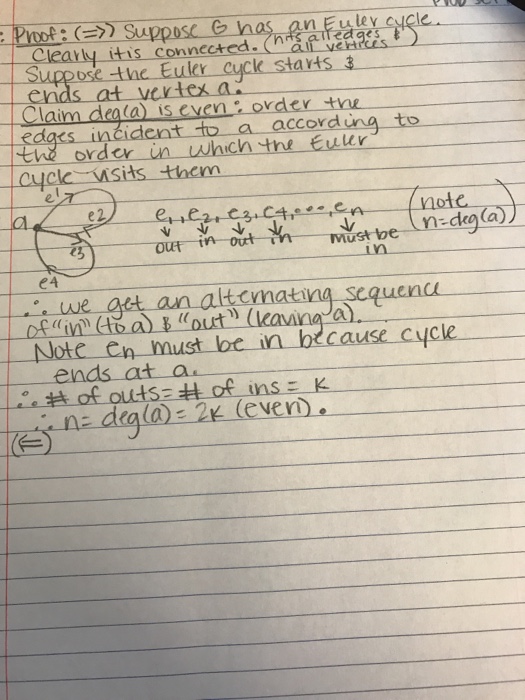 : Proof: (⇒) Suppose G has an Euler cycle.
Clearly it is connected. (hits all edges &
all vertices)
Suppose the Euler cycle starts &
ends at vertex a.
Claim deg(a) is even: order the
edges incident to a according to
the order in which the Euler
cycle visits them
e1
a e2
e3
e4
e1, e2, e3, e4, ..., en
↓ ↓ ↓ ↓ ↓
out in out in must be
in
(note
n=deg(a))
∴ we get an alternating sequence
of "in" (to a) & "out" (leaving a).
Note en must be in because cycle
ends at a.
∴ # of outs = # of ins = K
∴ n = deg(a) = 2K (even).
(⇐)